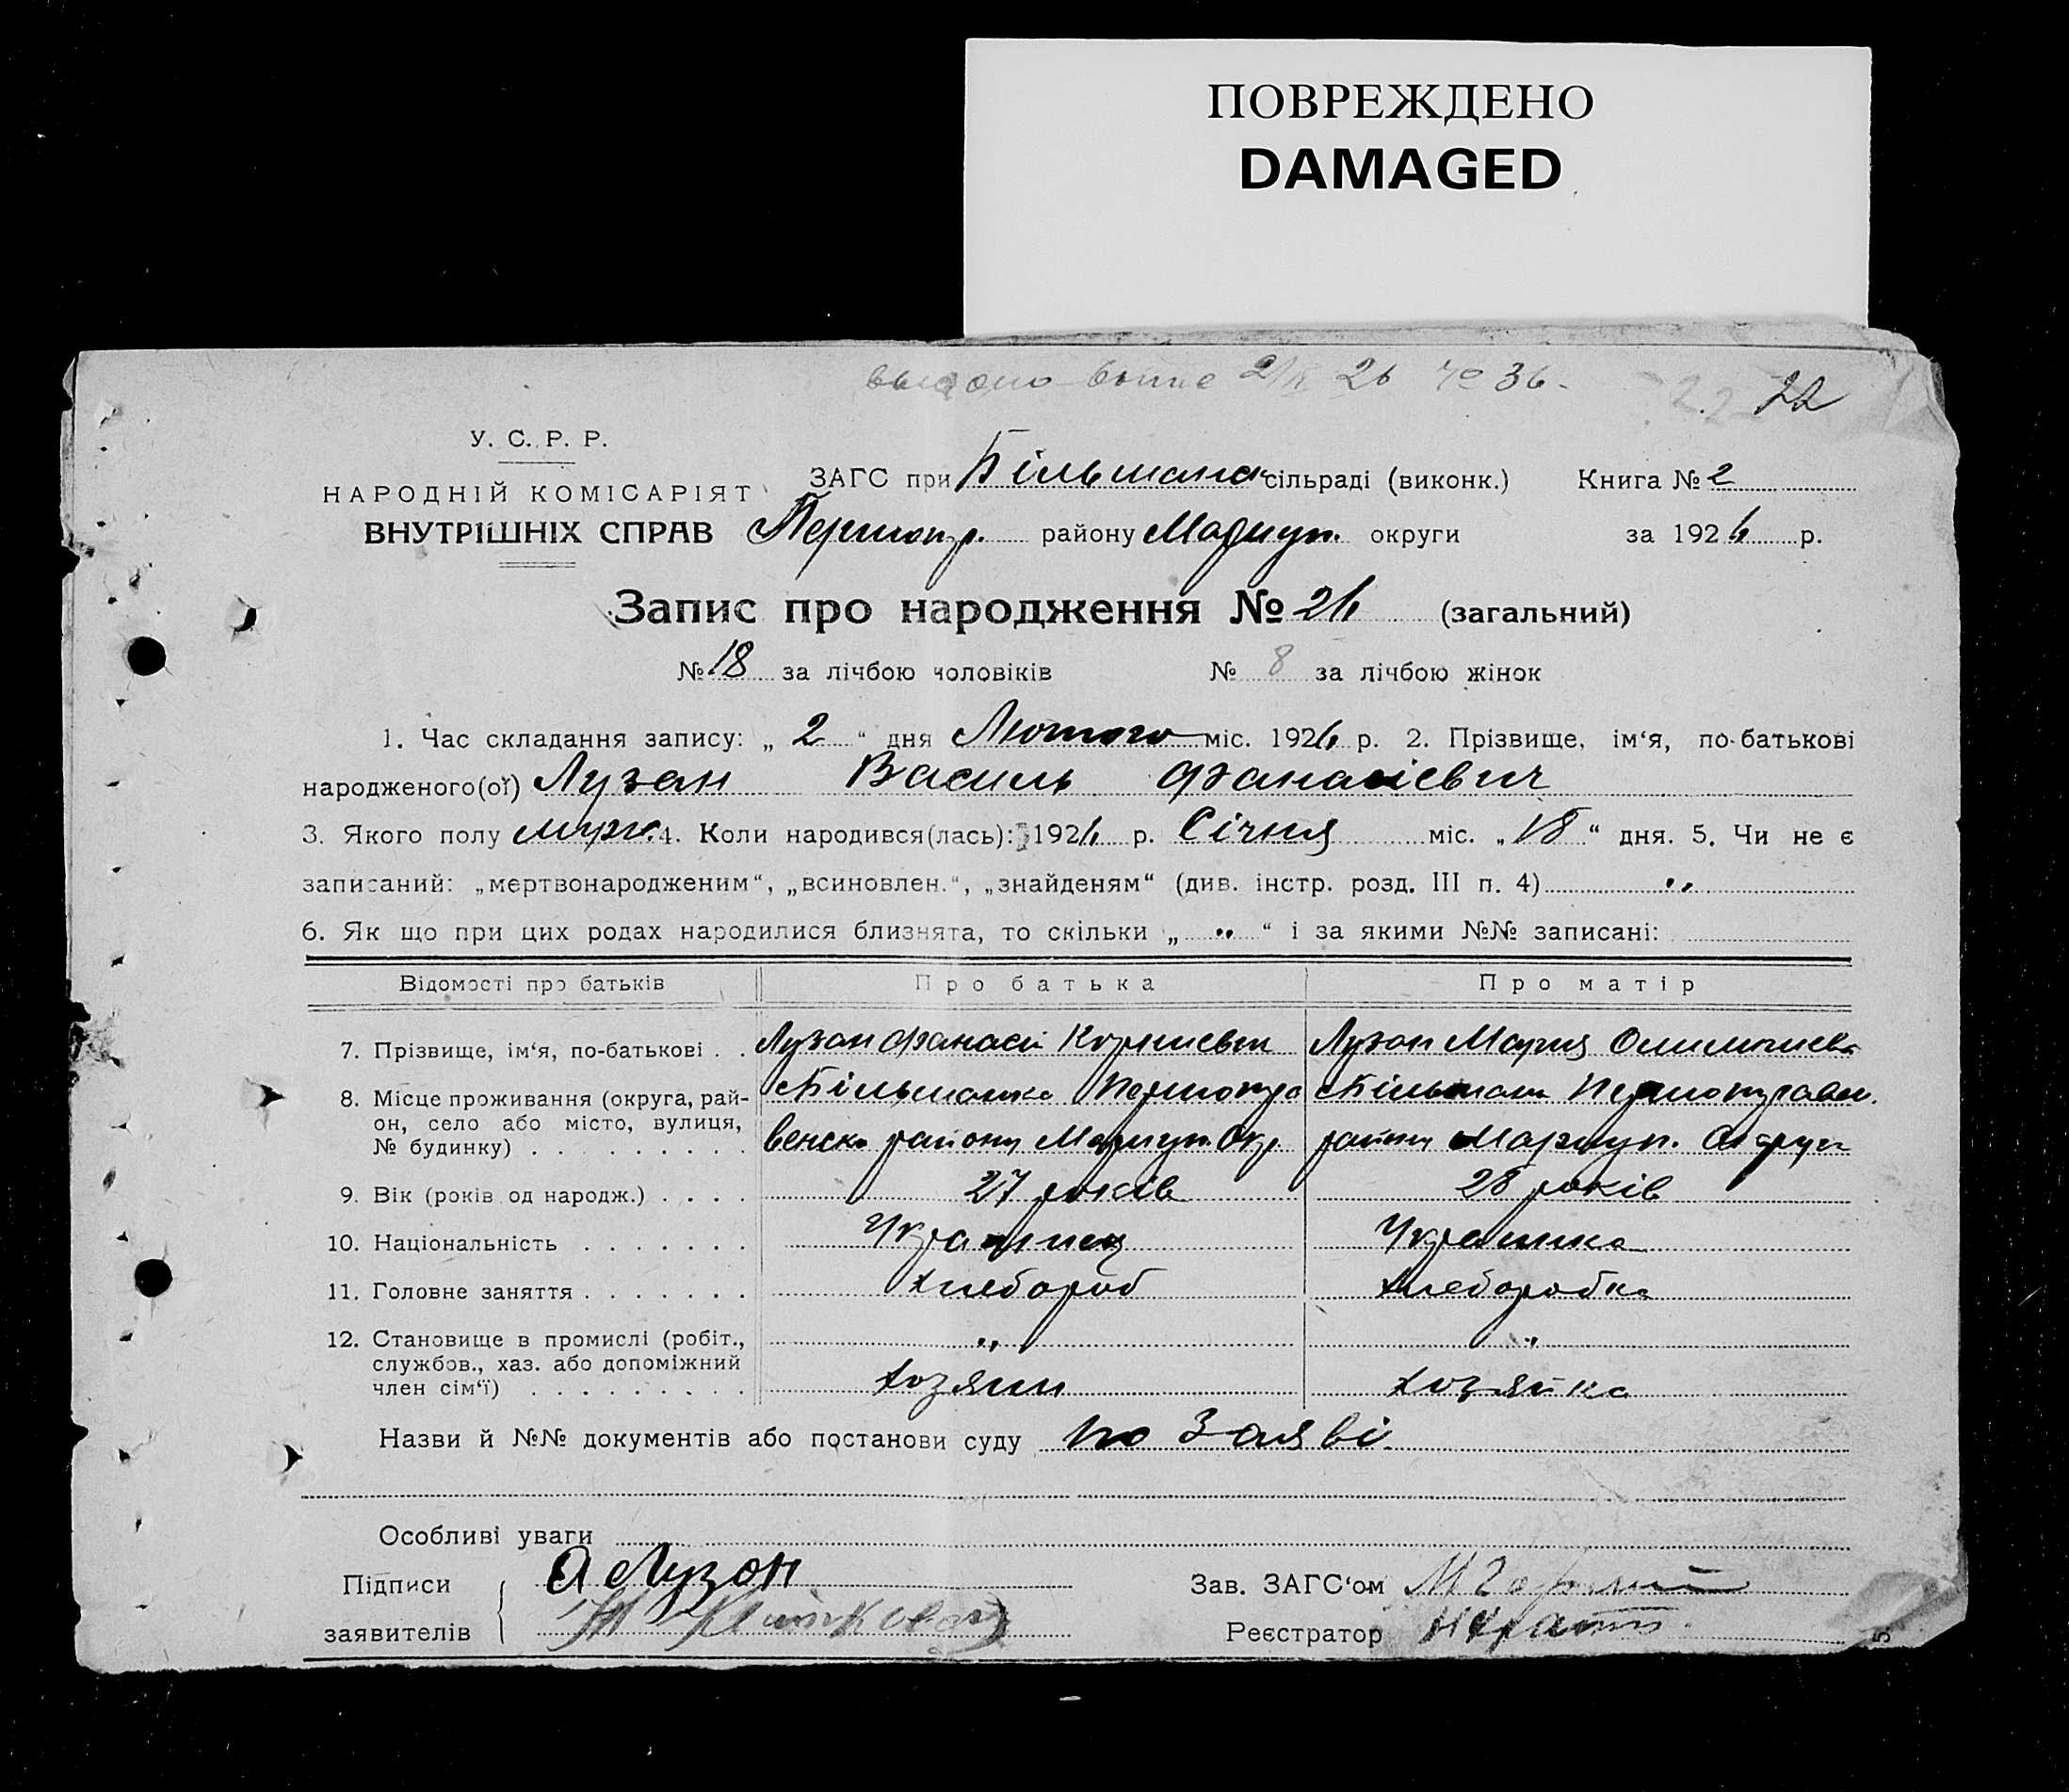 ПОВРЕЖДЕНО
DAMAGED
26 № 36.
22
У. С. Р. Р.
НАРОДНІЙ КОМІСАРІЯТ
ВНУТРІШНІХ СПРАВ
ЗАГС при Більшана сільраді (виконк.) Книга № 2
Першопр. району Мариуп. округи за 1926 р.
Запис про народження № 26 (загальний)
№ 18 за лічбою чоловіків № 8 за лічбою жінок
1. Час складання запису: „ 2 “ дня Лютого міс. 1926 р. 2. Прізвище, ім‘я, по-батькові
народженого(ої) Лузан Василь Фанасієвич
3. Якого полу муж. 4. Коли народився(лась): 1926 р. Січня міс. „ 18 “ дня. 5. Чи не є
записаний: „мертвонародженим“, „всиновлен.“, „знайденям“ (див. інстр. розд. III п. 4) „
6. Як що при цих родах народилися близнята, то скільки „ „ “ і за якими №№ записані:
Відомості про батьків Про батька Про матір
7. Прізвище, ім‘я, по-батькові . . Лузан Фанасій Лузан Мария
8. Місце проживання (округа, рай-
он, село або місто, вулиця,
№ будинку) . . . . . . . . .
с Більшанка Першотра
венска району Мариуп. Окр.
с Більшанка Першотравен.
району Мариуп. Округи
9. Вік (років од народж.) . . . . 27 років 28 років
10. Національність . . . . . . . Украинец Украинка
11. Головне заняття . . . . . . . хлебороб хлеборобка
12. Становище в промислі (робіт., „ „
службов., хаз. або допоміжний
член сім‘ї) . . . . . . . . . хозяин хозяйка
Назви й №№ документів або постанови суду по Заяві.
Особливі уваги
Підписи
заявителів
А Лузон
Зав. ЗАГС‘ом
Реєстратор
5.